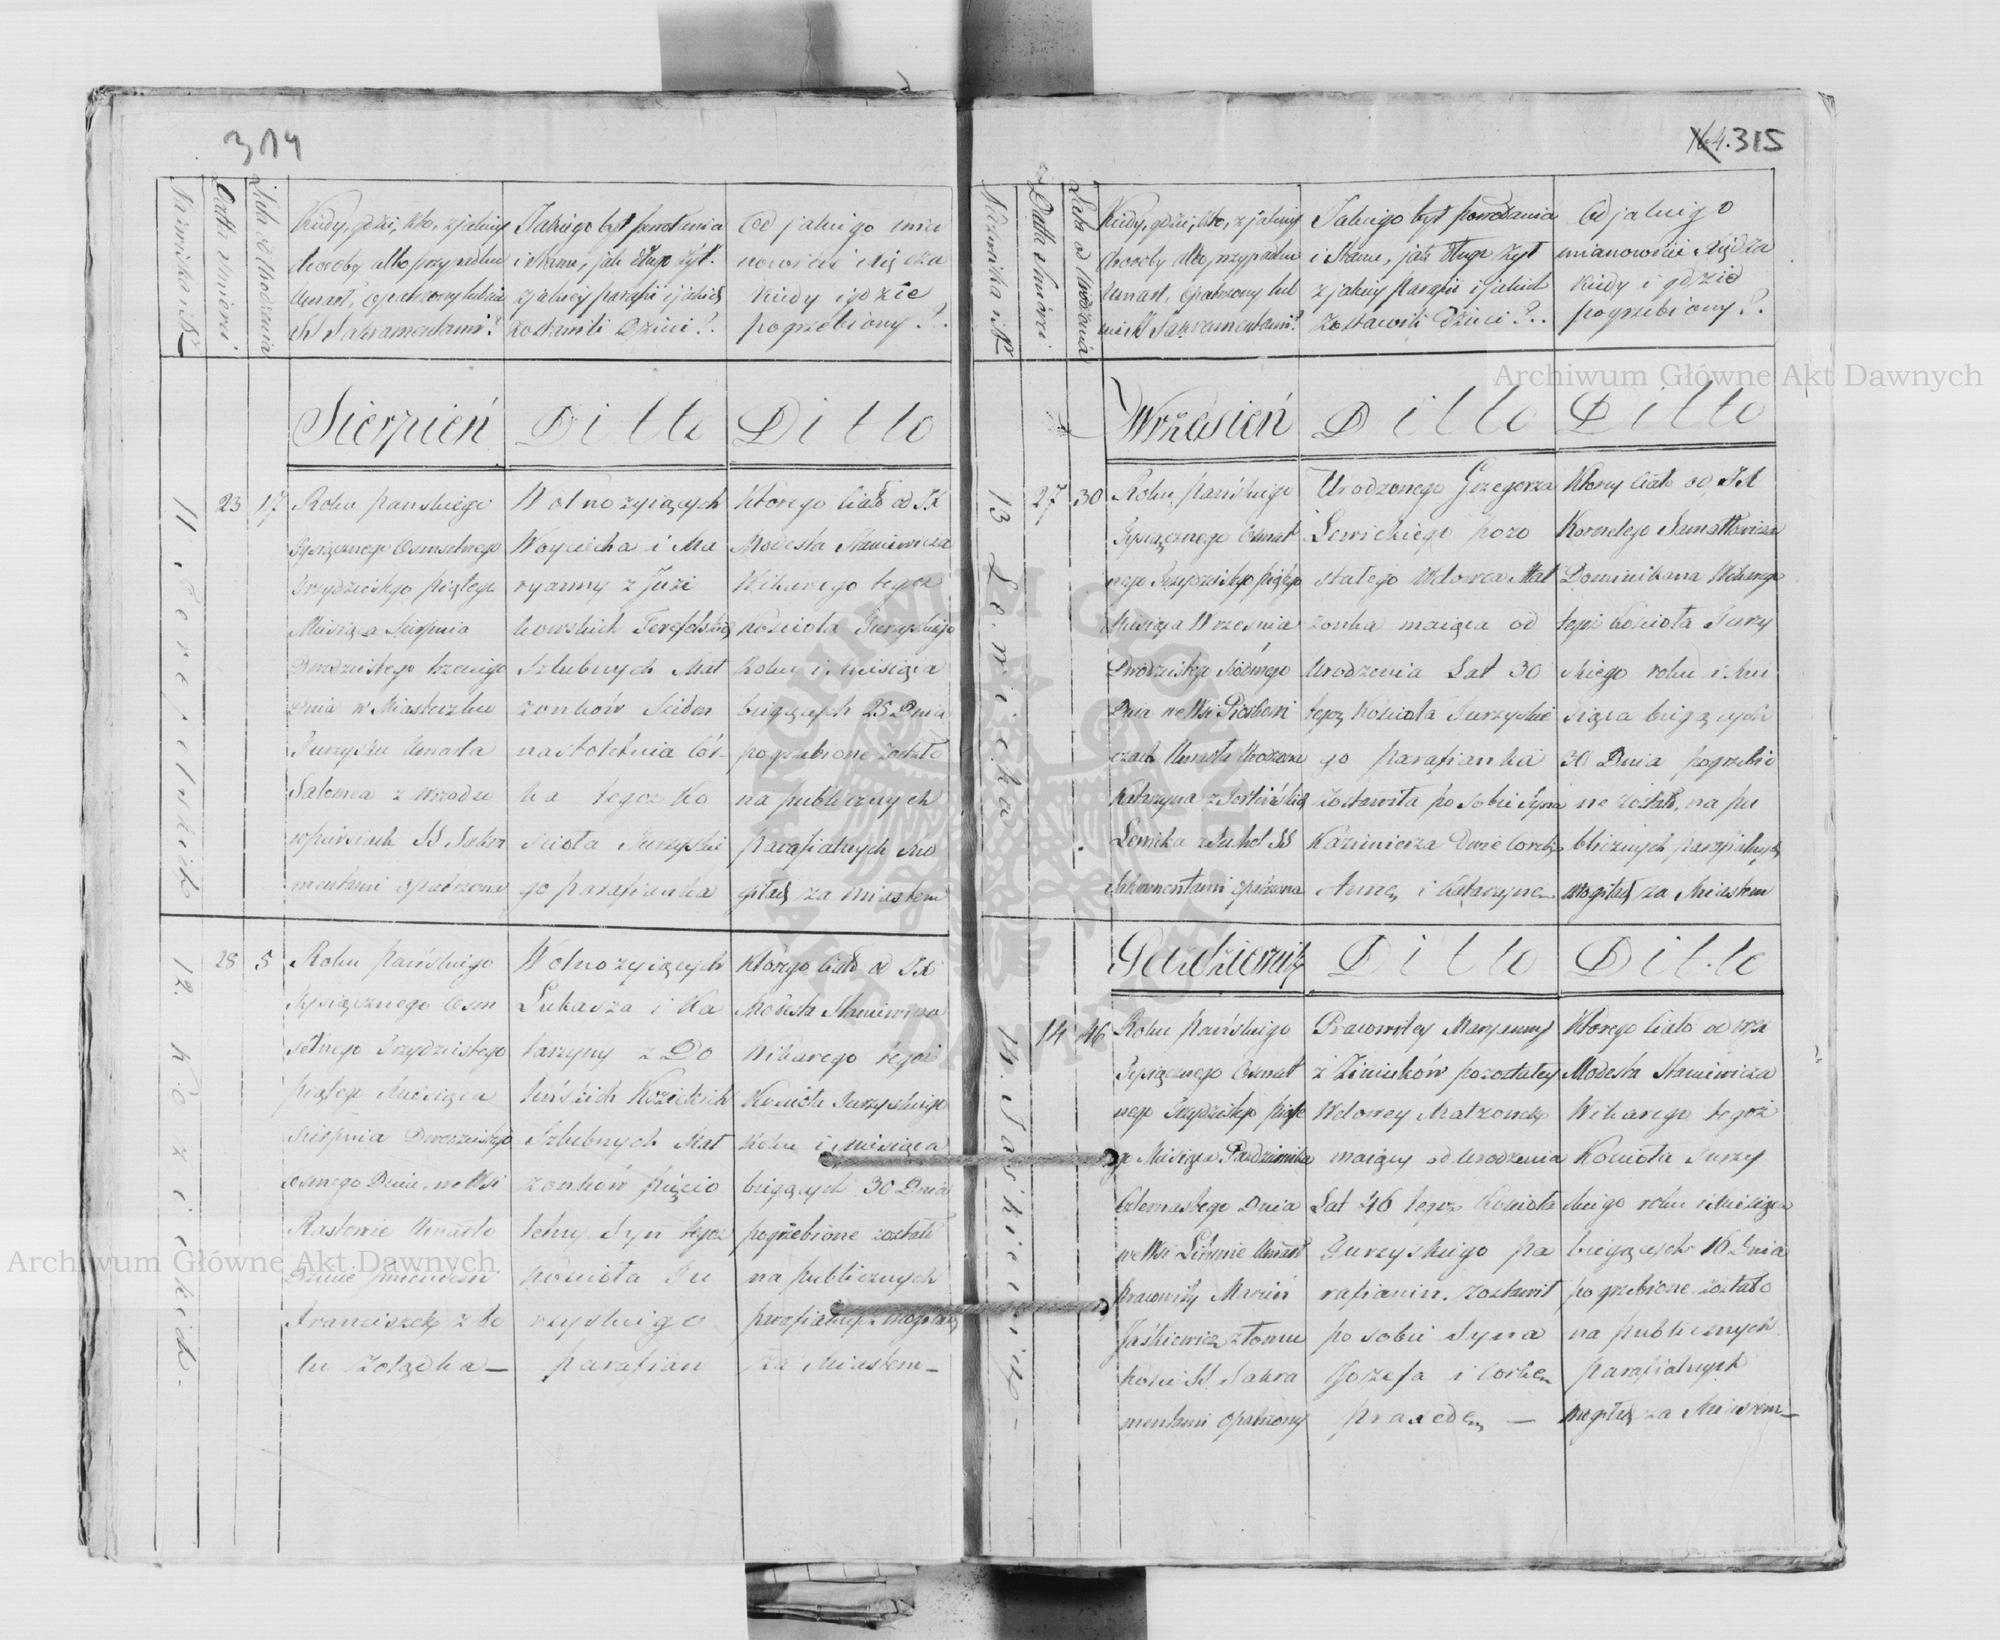 314
Nazwiska i N
Datta Śmierci
Lata od Urodzenia
Kiedy, gdzie, kto, z jakiey
choroby albo przypadku
Umarł, Opatrzony lub nie
SS Sakramentami?
Jakiego był powołania
i stanu, jak długo żył.
z jakiey parafii i jakich
zostawili dzieci?.
Od jakiego mia
nowicie Xiędza
kiedy i gdzie
pogrzebiony?.
Sierpień
Ditto
Ditto
11
Terefelskich
23
17
Roku pańskiego
Tysiącznego Osmsetnego
Trzydzieskgo piątego
Miesiąca Sierpnia
Dwudziestego trzeciego
Dnia w Miasteczku
Jurzysku Umarła
Salomea z wrzodu
w piersiach SS Sakra
mentami opatrzona
Wolnożyiących
Woyciecha i Ma
ryanny z Juzi
kowskich Terefelskich
Szlubnych Mał
zonków Siedm
nastoletnia Cór-
ka tegoz Ko
scioła Jurzyski
go parafianka
którego ciało od JX
Modesta Staniewicza
Wikarego tegoz
Kościoła Jurzyskiego
Roku i Miesiąca
bieżących 25 Dnia
pogrzebione zostało
na publicznych
parafialnych Mo
giłach za Miastem
12.
Kozickich.
28
5
Roku Pańskiego
Tysiącznego Osm
setnego Trzydziestego
piątego Miesiąca
Sierpnia Dwudziestego
osmego Dnia, we Wsi
Umarło
Dziecie imieniem
Franciszek z bo
lu żołądka —
Wolnożyiących
Łukasza i Ka
tarzyny z Do
lińskich Kozickich
Szlubnych Mał
zonków pięcio
letny Syn tegoz
Kościoła Ju
rzyskiego
parafian
Którego Ciało od JX
Modesta Staniewicza
Wikarego tegoż
Kościoła Jurzyskiego
Roku i Miesiąca
bieżących 30 Dnia
pogrzebione zostało
na publicznych
parafialnych mogiłach
za Miastem —
315
Nazwiska i N
Datta Śmierci
Lata od Urodzenia
Kiedy, gdzie, kto, z jakiey
choroby albo przypadku
Umarł, opatrzony lub
nie SS Sakramentami?
Jakiego był powołania
i Stanu, jak długo żył
z jakiey Parafii i jakich
Zostawili Dzieci?..
Od jakiego
mianowicie Xiędza
kiedy i gdzie
pogrzebiony?.
Wrzesień
Ditto
Ditto
13
Lewicka
27
30
Roku Pańskiego
Tysiącznego Osmset
nego Trzydzieskgo piątego
Miesiąca Września
Dwódziestego Siódmego
Dnia we Wsi
Umarła Urodzona
Katarzyna
Lewicka z Suchot SS
Sakramentami opatrzona
Urodzonego Grzegorza
Lewickiego pozo
stałego Wdowca Mał
zonka maiąca od
Urodzenia Lat 30
tegoz Kościoła Jurzyskie
go Parafianka
Zostawiła po sobie Syna
Kazimierza Dwie Corek
Annę i Katarzynę
Który ciało od JX
Kornelego
Dominikana Wikarego
tegoż Kościoła Jurzy
skiego roku i Mie
siąca bieżących
30 Dnia pogrzebio
ne zostało, na pu
blicznych parafialnych
Mogiłach za Miastem
Październik
Ditto
Ditto
14.
Jaśkiewicz —
14
46
Roku Pańskiego
Tysiącznego Osmset
nego Trzydzieskgo piąte
go Miesiąca Października
Czternastego Dnia
we Wsi Umarł
Pracowity Marcin
Jaśkiewicz z łomu
Kości SS Sakra
mentami Opatrzony
Pracowitey Maryanny
z Zimaków pozostałey
Wdowey Małzonek
maiący od Urodzenia
Lat 46 tegoz Kościoła
Jurzyskiego pa
rafianin. Zostawił
po sobie Syna
Jozefa i Corkę
Praxedę —
Którego Ciało od WJX
Modesta Staniewicza
Wikarego tegoż
Kościoła Jurzy
skiego roku i Miesiąca
bieżących 16 Dnia
pogrzebione zostało
na Publicznych
Parafialnych
Mogiłach za Miastem —
Archiwum Główne Akt Dawnych
Archiwum Główne Akt Dawnych
ARCHIWUM GŁÓWNE
AKT DAWNYCH